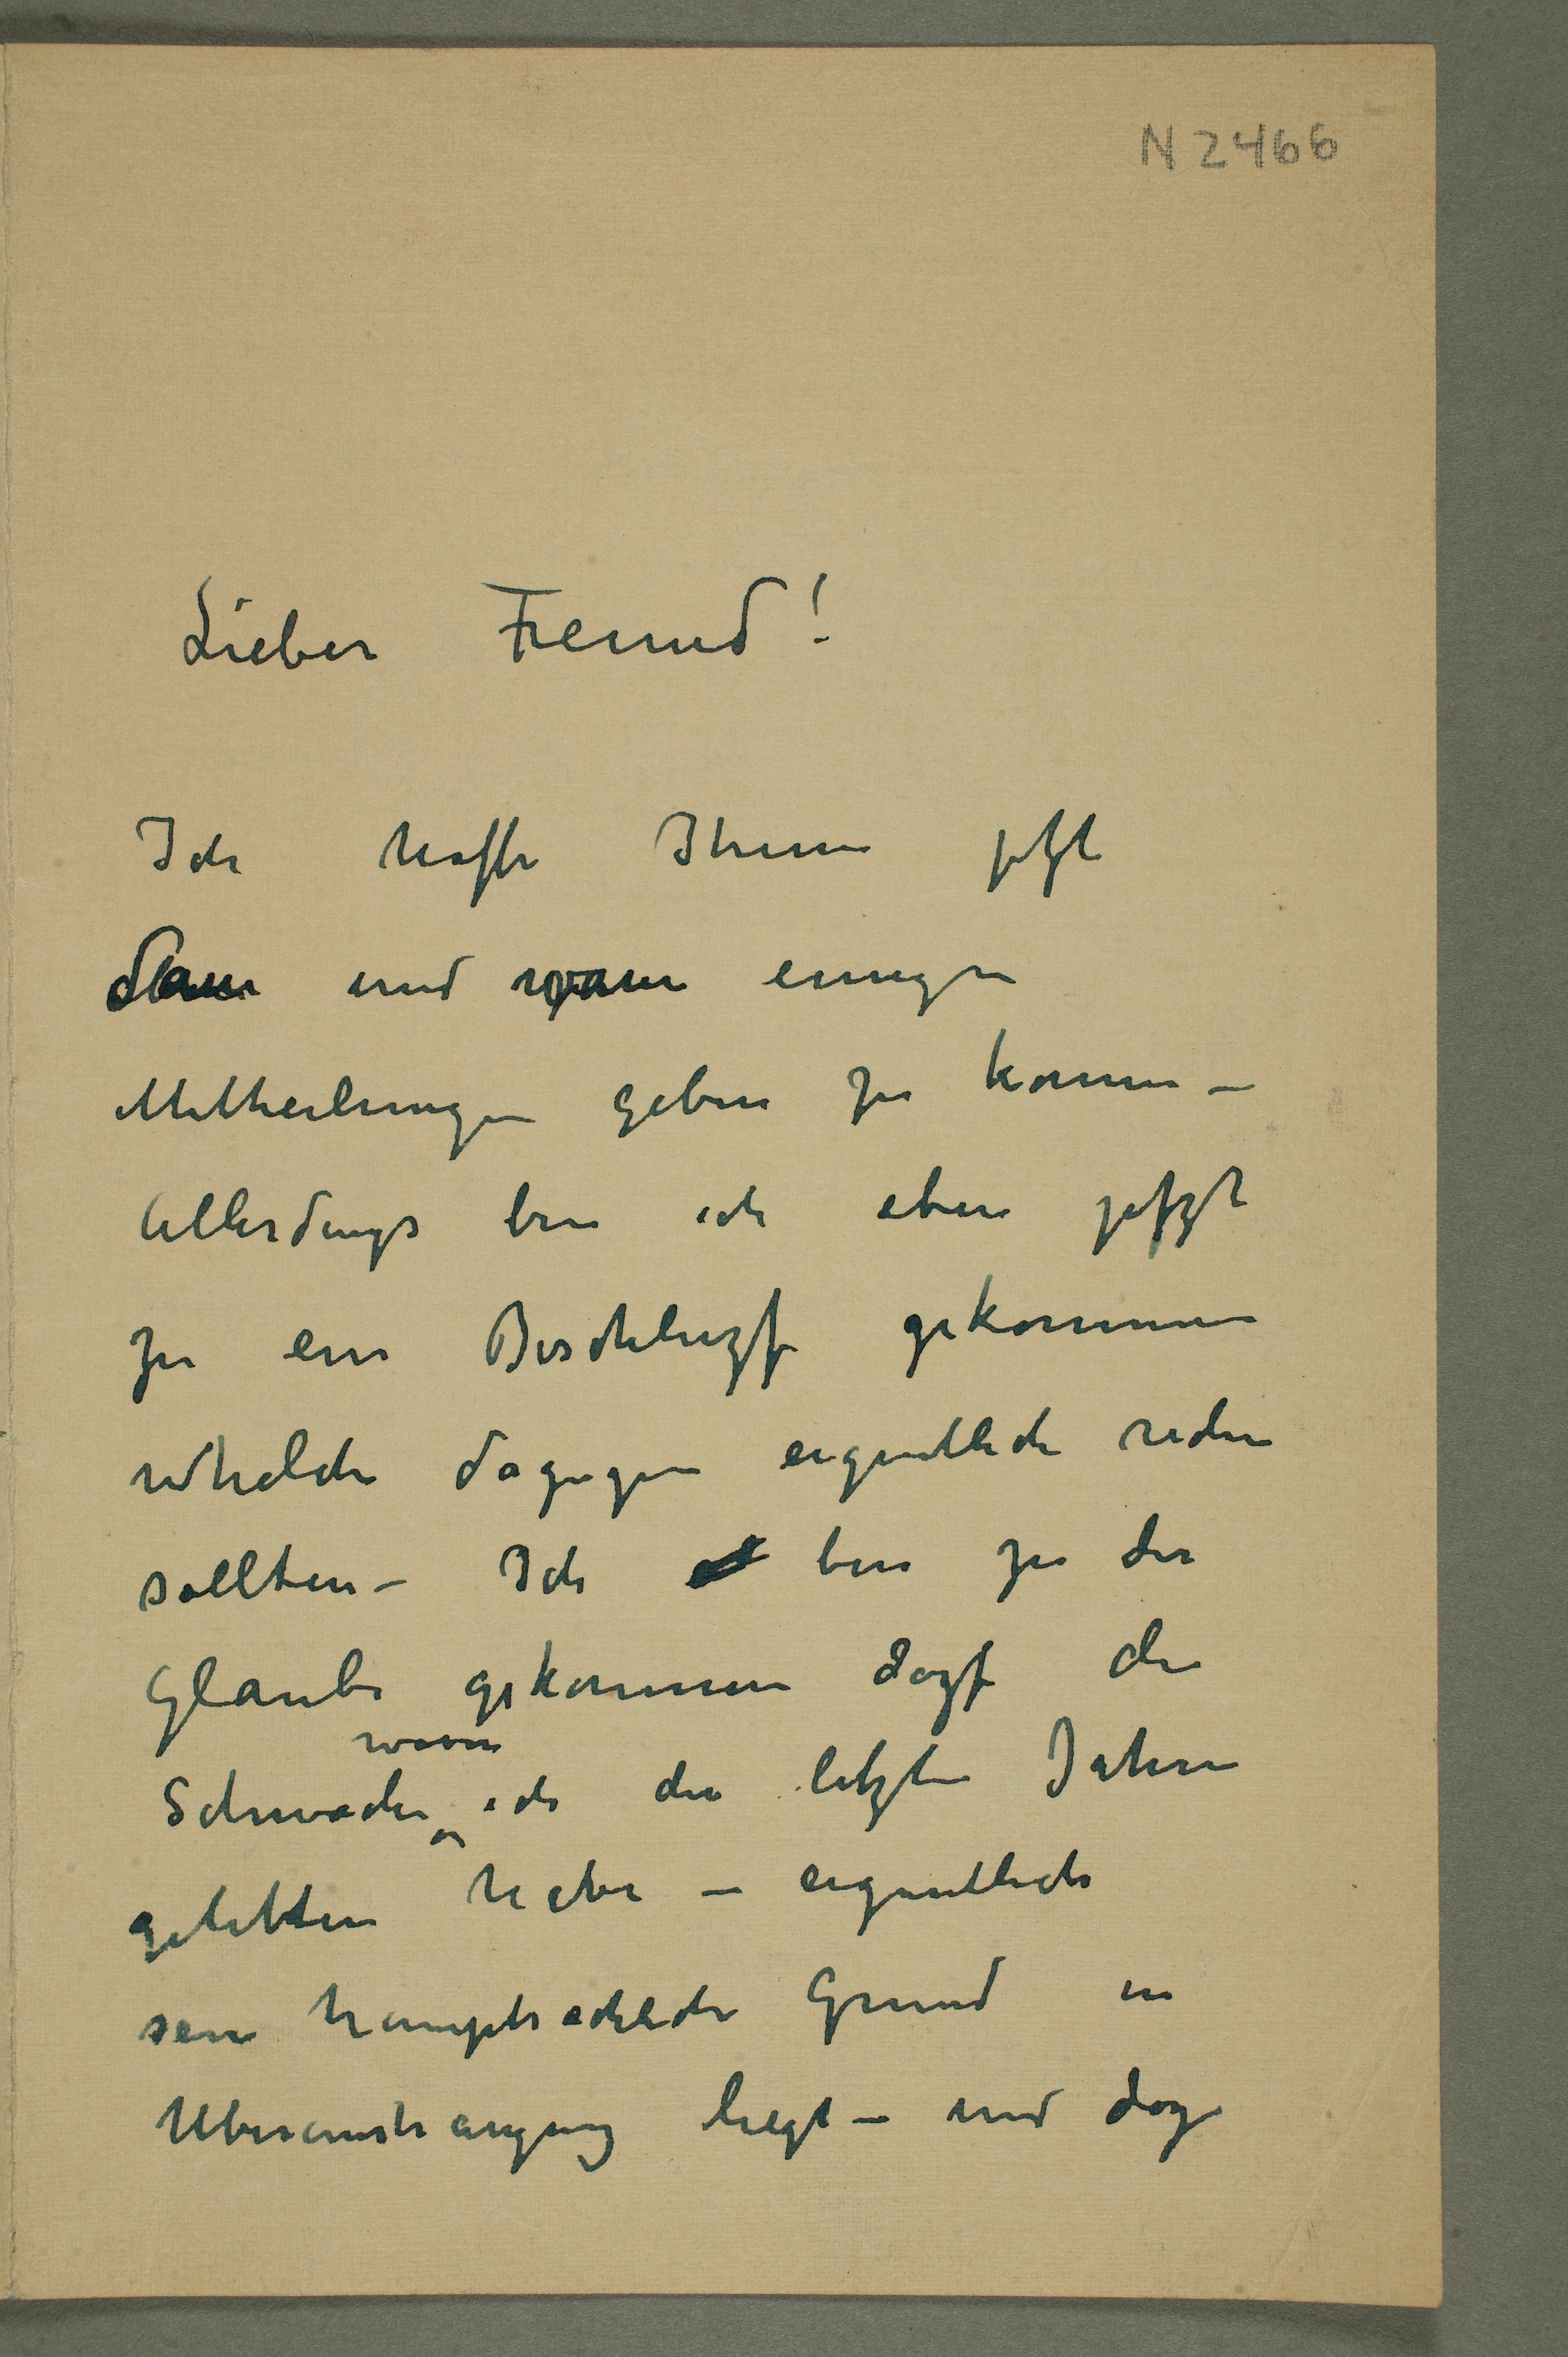 N 2466
Lieber Freund!
Ich hoffe Ihnen jetzt
dann und wann einigen
Mittheilungen geben zu konnen –
Allerdings bin ich eben jetzt
zu ein Beschluzs gekommen
whelche dagegen eigentlich reden
sollten – Ich bin zu der
Glaube gekommen dazs die
Schwäche wovon ich die letzten Jahren
gelitten habe – eigentlich
sein hauptsächliche Grund in
Uberanstrangung liegt – und daz